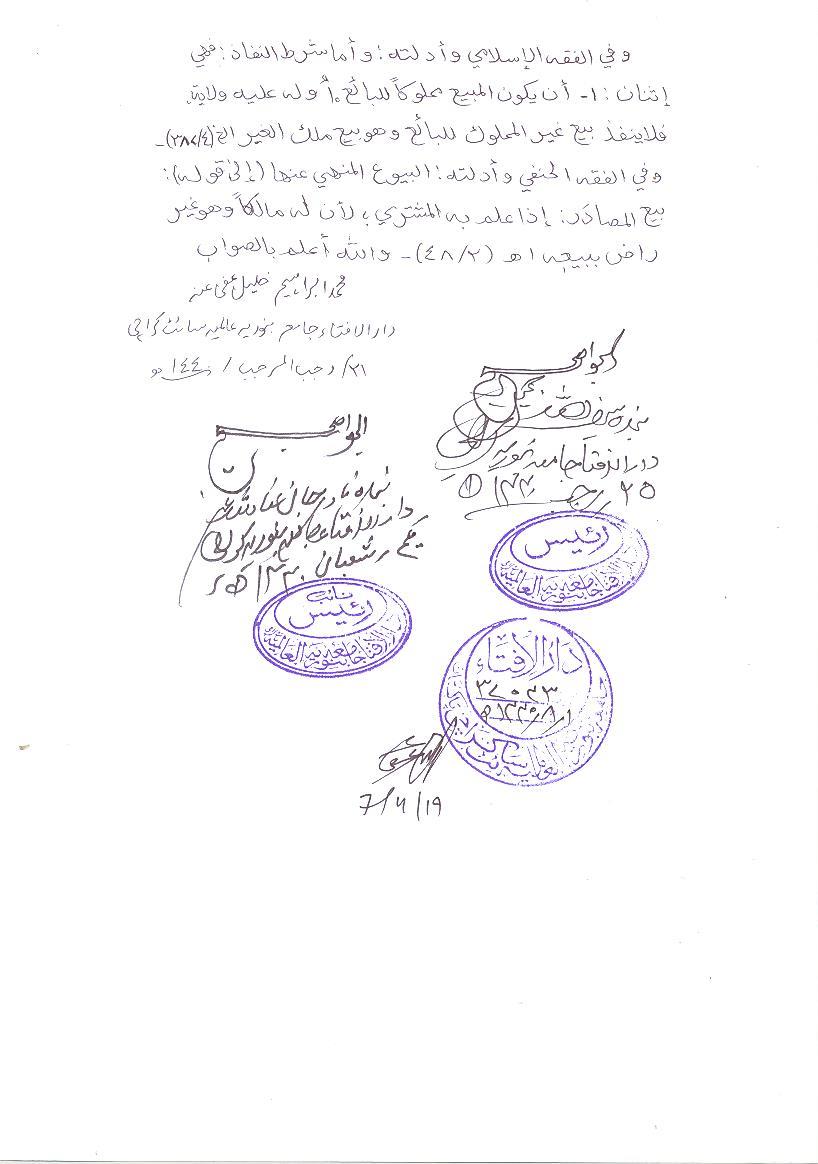 وفي الفقه الإسلامي وأدلته: وأما شرط النفاذ: فهي
إثنان: ١- أن يكون المبيع مملوكاً للبائع أو له عليه ولاية
فلا ينفذ بيع غير المملوك للبائع وهو بيع ملك الغير الخ (٤/٣٨٧)-
وفي الفقه الحنفي وأدلته: البيوع المنهي عنها (إلى قوله):
بيع المصادَر: إذا علم به المشتري، لأن له مالكاً وهو غير
راض ببيعه اھ (٢/٤٨)- والله أعلم بالصواب
محمد ابراهيم خليل عفی عنہ
دار الافتاء جامعہ بنوریہ عالمیہ سائٹ کراچی
٢١/ رجب المرجب / ١٤٤٠ھ
الجواب صحیح
بندہ سیف اللہ جمیل
دار الافتاء جامعہ بنوریہ
٢٥ رجب ١٤٤٠ھ
الجواب صحیح
بندہ نادر جان
دار الافتاء جامعہ بنوریہ کراچی
یکم شعبان ١٤٤٠ھ
رئيس
دار الافتاء جامعہ بنوریہ العالمیہ
نائب
رئيس
دار الافتاء جامعہ بنوریہ العالمیہ
دار الافتاء
٣٧٠٤٣
جامعہ بنوریہ العالمیہ سائٹ کراچی
7/4/19